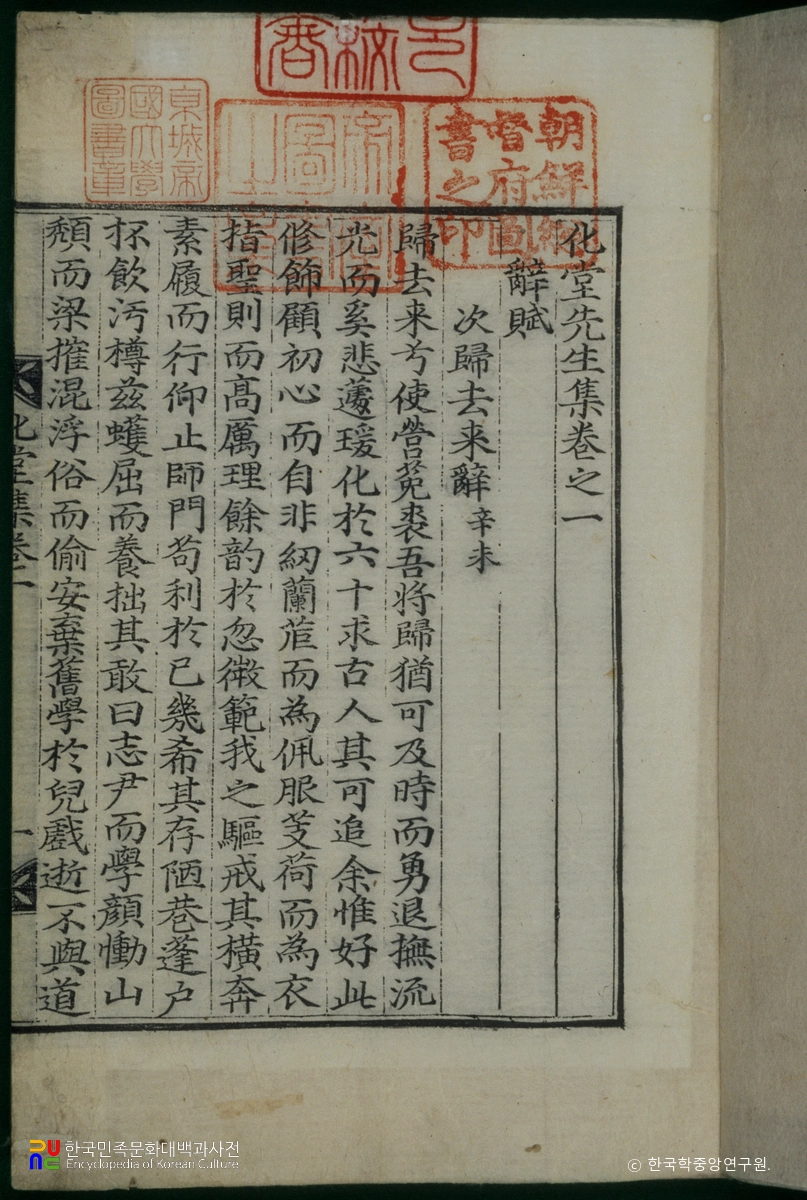 化堂先生集卷之一
辭賦
次歸去来辭 辛未
歸去来兮使营菟裘吾将歸猶可及時而勇退撫流
光而奚悲蘧瑗化於六十求古人其可追余惟好此
修飾顧初心而自非紉蘭茝而為佩服芰荷而為衣
指聖則而高厲理餘韵於忽微範我之驅戒其橫奔
素履而行仰止師門苟利於已幾希其存陋巷蓬户
抔飲汚樽茲蠖屈而養拙其敢曰志尹而學顔慟山
頹而梁摧混浮俗而偷安棄舊學於兒戲逝不與道
化堂集卷一
一
朝鮮總
督府圖
書之印
京城帝
國大學
圖書章
한국민족문화대백과사전
Encyclopedia of Korean Culture
© 한국학중앙연구원.